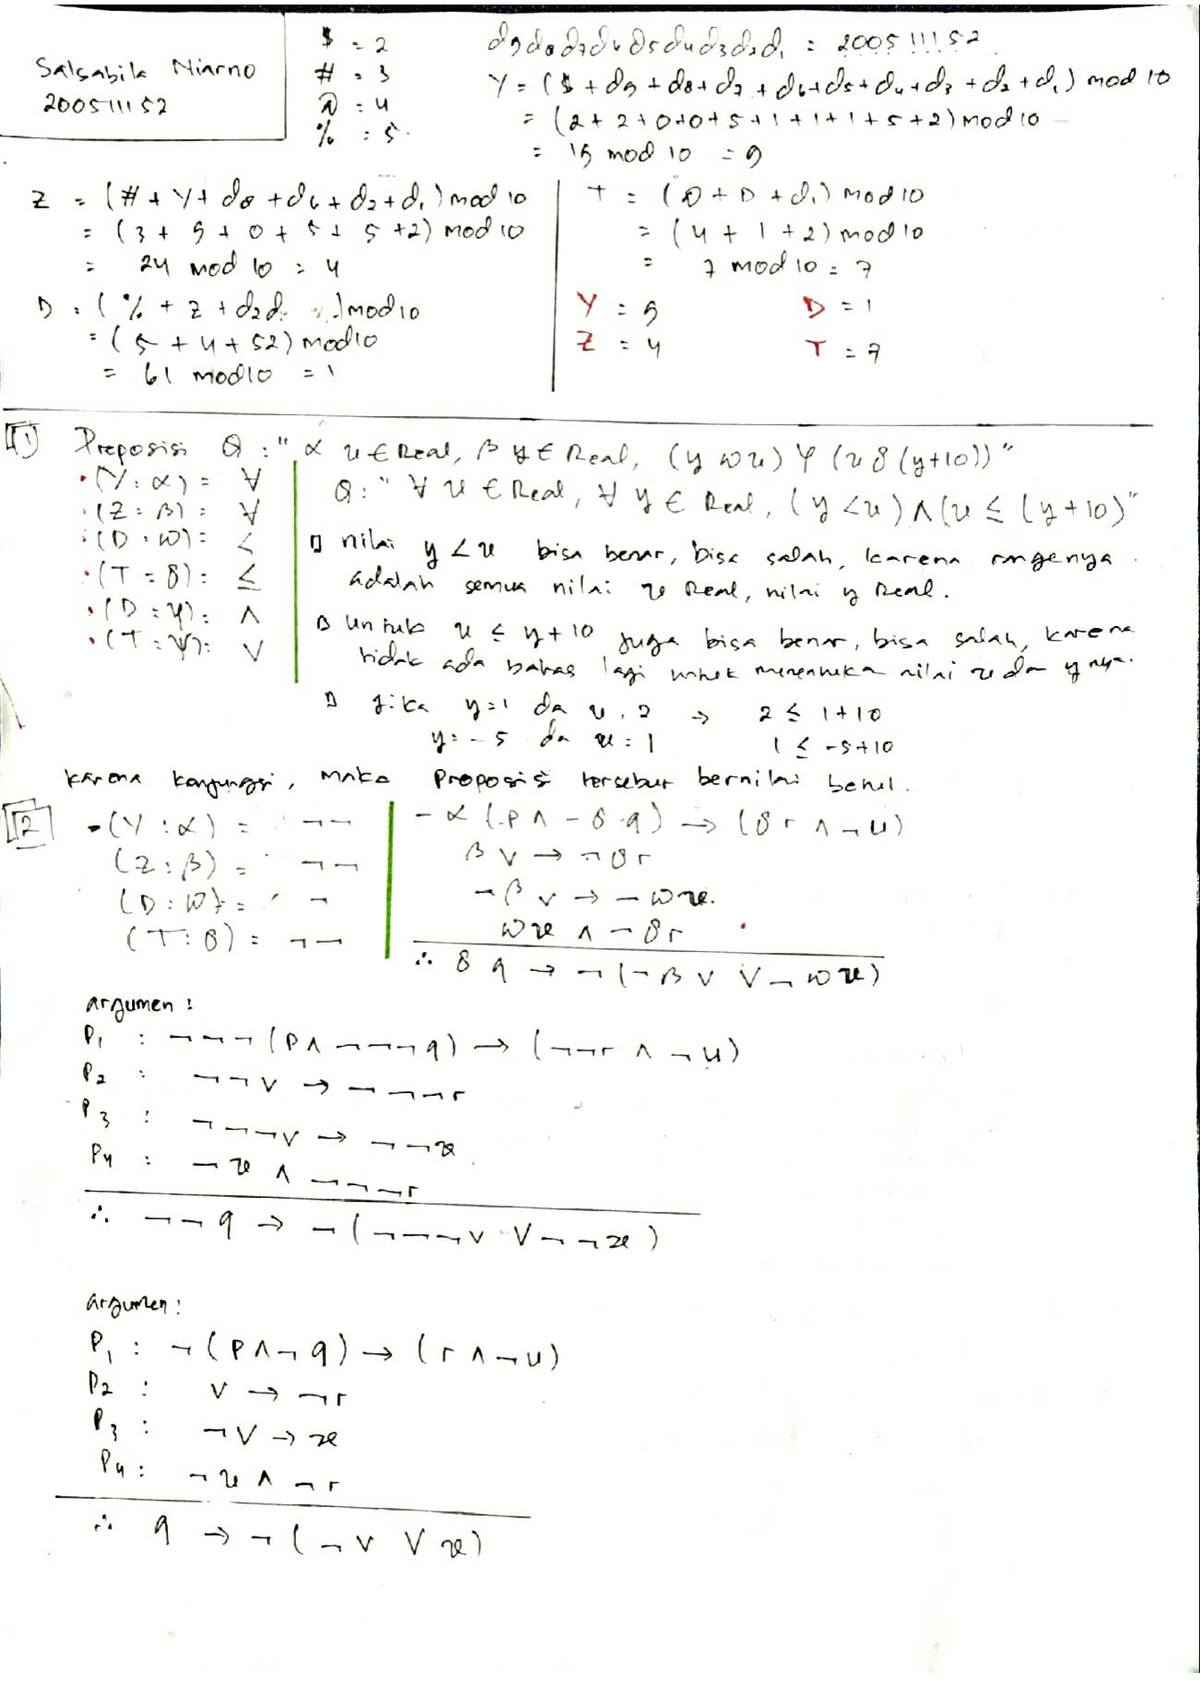 Salsabila Niarno
200511152
$ = 2
# = 3
@ = 4
% = 5
d9d8d7d6d5d4d3d2d1 = 200511152
Y = ($ + d9 + d8 + d7 + d6 + d5 + d4 + d3 + d2 + d1) mod 10
= (2 + 2 + 0 + 0 + 5 + 1 + 1 + 1 + 5 + 2) mod 10
= 19 mod 10 = 9
Z = (# + Y + d8 + d6 + d2 + d1) mod 10
= (3 + 9 + 0 + 5 + 5 + 2) mod 10
= 24 mod 10 = 4
D = (% + Z + d2d1) mod 10
= (5 + 4 + 52) mod 10
= 61 mod 10 = 1
T = (@ + D + d1) mod 10
= (4 + 1 + 2) mod 10
= 7 mod 10 = 7
Y = 9 D = 1
Z = 4 T = 7
1) Preposisi Q : "α x ∈ Real, β y ∈ Real, (y ω x) φ (x δ (y+10))"
(Y : α) = ∀
(Z = β) = ∀
(D : ω) = <
(T = δ) : ≤
(D = φ) : ∧
(T = ψ) : ∨
Q : "∀ x ∈ Real, ∀ y ∈ Real, (y < x) ∧ (x ≤ (y+10)"
nilai y < x bisa benar, bisa salah, karena rangenya
adalah semua nilai x Real, nilai y Real.
Untuk x ≤ y+10 juga bisa benar, bisa salah, karena
tidak ada batas lagi untuk menentuka nilai x da y nya.
Jika y=1 da x = 2 → 2 ≤ 1+10
y = -5 da x = 1 1 ≤ -5+10
karena konjungsi, maka proposisi tersebut bernilai betul.
2
(Y : α) = ¬¬
(Z : β) = ¬¬
(D : ω) = ¬
(T : δ) = ¬¬
¬α (p ∧ ¬δ q) → (δ r ∧ ¬u)
β v → ¬δ r
¬β v → ¬ω x.
ω x ∧ ¬δ r
∴ δ q → ¬(¬β v ∨ ¬ω x)
argumen :
P1 : ¬¬¬(p ∧ ¬¬¬q) → (¬¬r ∧ ¬u)
P2 : ¬¬v → ¬¬¬r
P3 : ¬¬¬v → ¬¬x
P4 : ¬x ∧ ¬¬¬r
∴ ¬¬q → ¬(¬¬¬v ∨ ¬¬x)
argumen :
P1 : ¬(p ∧ ¬q) → (r ∧ ¬u)
P2 : v → ¬r
P3 : ¬v → x
P4 : ¬x ∧ ¬r
∴ q → ¬(¬v ∨ x)